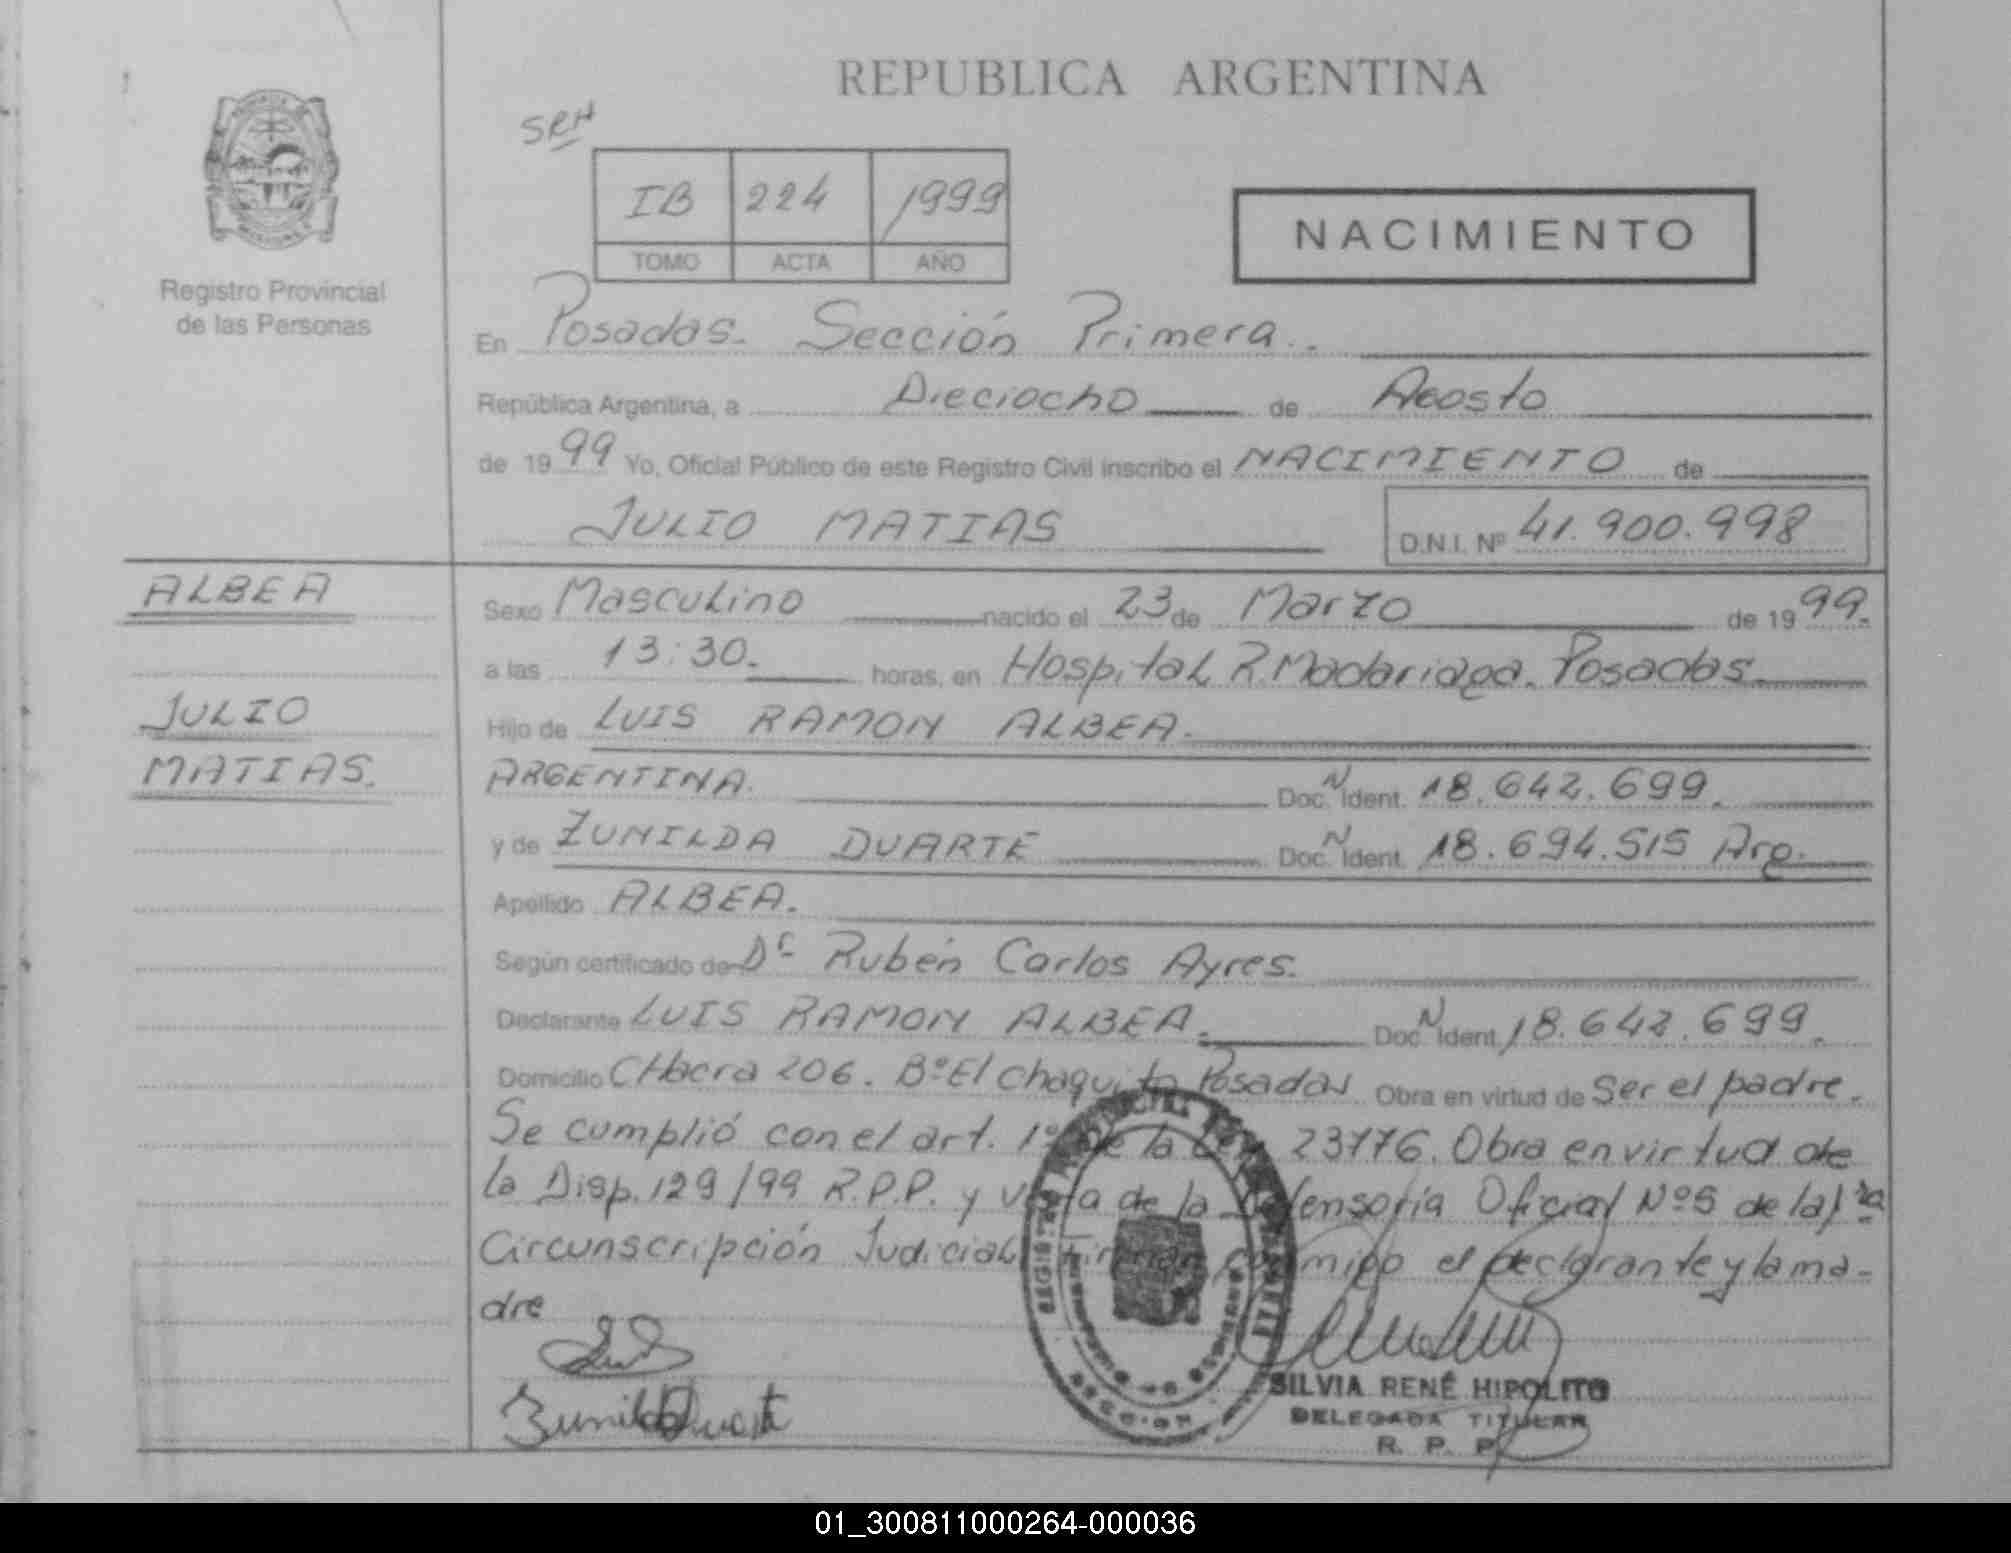 REPUBLICA ARGENTINA
SRH
IB 224 1999
TOMO ACTA AÑO
NACIMIENTO
Registro Provincial
de las Personas
En Posadas. Sección Primera.
República Argentina, a Dieciocho de Agosto
de 1999 Yo, Oficial Público de este Registro Civil inscribo el NACIMIENTO de
JULIO MATIAS D.N.I. Nº 41.900.998
ALBEA
JULIO
MATIAS.
Sexo Masculino nacido el 23 de Marzo de 1999.
a las 13:30. horas, en Hospital R. Madariaga. Posadas.
Hijo de LUIS RAMON ALBEA.
ARGENTINA. Doc. N Ident. 18.642.699.
y de ZUNILDA DUARTE Doc. N Ident. 18.694.515 Arg.
Apellido ALBEA.
Según certificado de Dr Rubén Carlos Ayres.
Declarante LUIS RAMON ALBEA. Doc. N Ident. 18.642.699.
Domicilio CHacra 206. Bº El Chaquito Posadas Obra en virtud de Ser el padre.
Se cumplió con el art. 1º de la Ley 23776. Obra en virtud de
la Disp. 129/99 R.P.P. y vista de la Defensoría Oficial Nº5 de la 1ra
Circunscripción Judicial. Firman conmigo el declarante y la ma-
dre
Zunilda Duarte
SILVIA RENÉ HIPOLITO
DELEGADA TITULAR
R. P. P.
01_300811000264-000036